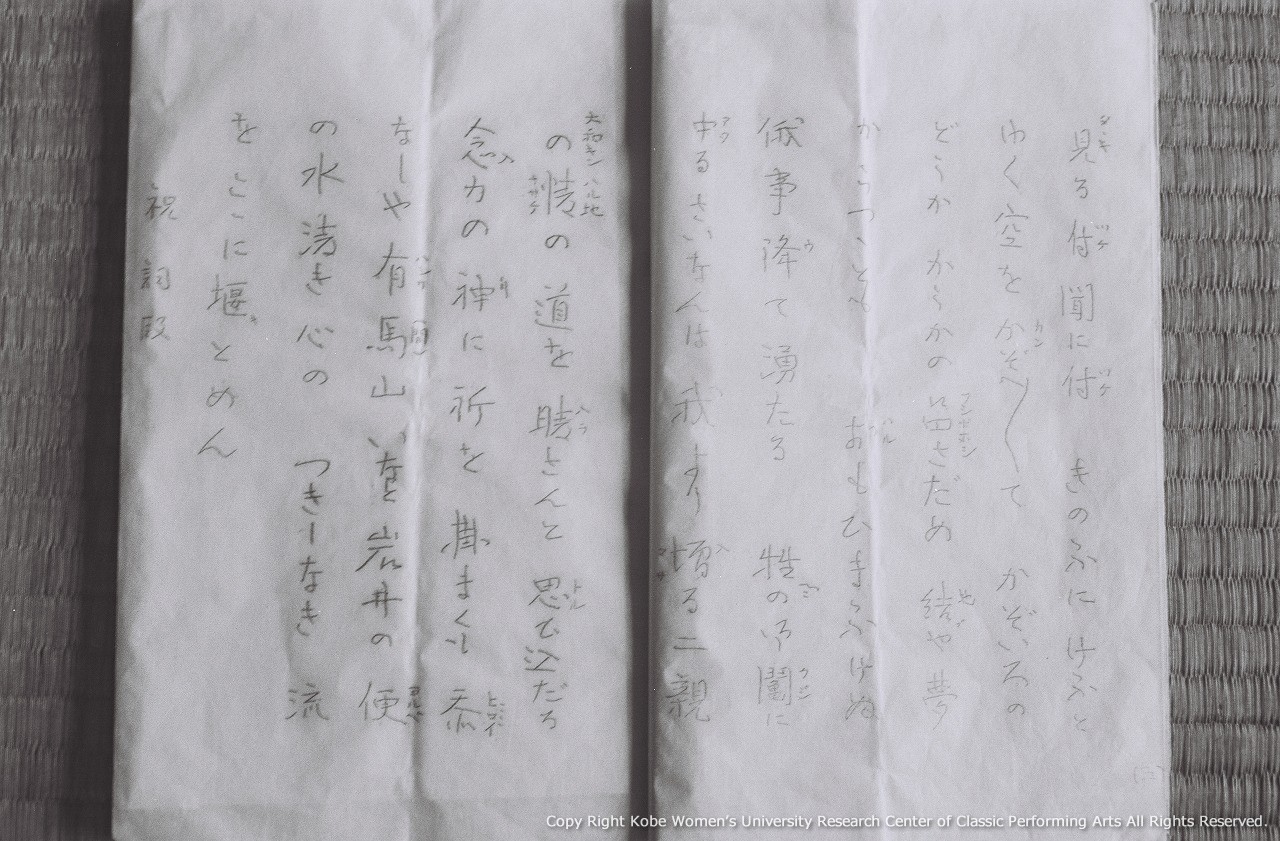 見る付聞に付 きのふにけふと
ゆく空をかぞへ〱て かぞいろの
どうかかうかの さだめ 結や夢
かうつゝとも おもひまふけぬ
俄事降て湧たる 牲の御鬮に
中るさいなんは我より 増る二親
の情の道を晴さんと 思て込だる
念力の神に祈を 掛まくも 忝
なーや有馬山いなを岩井の 便
の水清き心の つきーなき 流
を こゝに堰とめん
祝詞段
Copy Right Kobe Women's University Research Center of Classic Performing Arts All Rights Reserved.